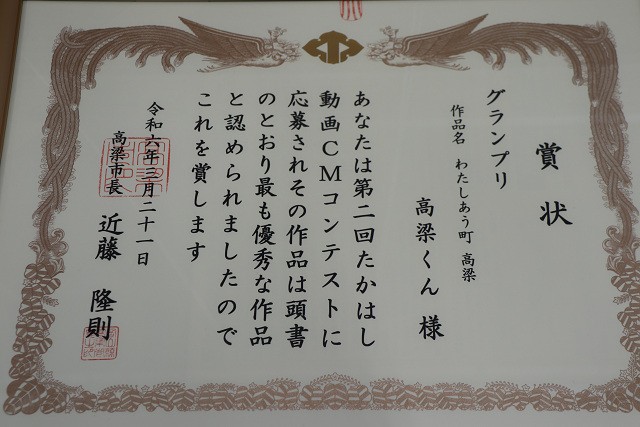 賞状
グランプリ
作品名 わたしあう町 高梁
高梁くん 様
あなたは第二回たかはし
動画CMコンテストに
応募されその作品は頭書
のとおり最も優秀な作品
と認められましたので
これを賞します
令和六年三月二十一日
高梁市長 近藤 隆則